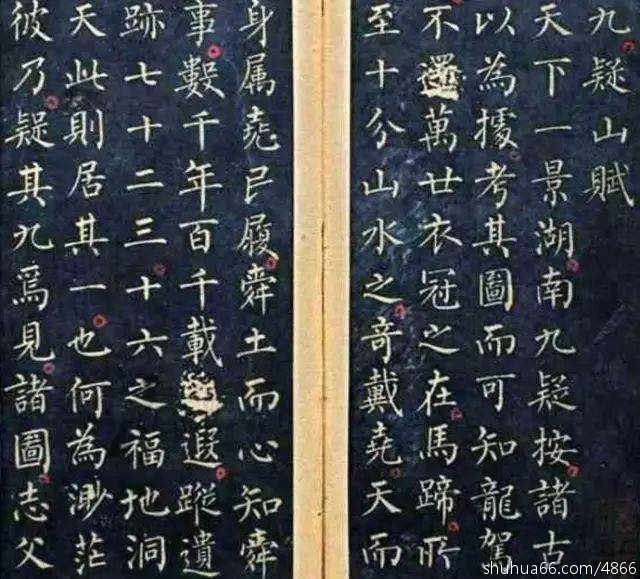 九疑山賦
天下一景湖南九疑按諸古
以為據考其圖而可知龍駕
不還萬世衣冠之在馬蹄所
至十分山水之奇戴堯天而
身属堯民履舜土而心知舜
事數千年百千載遐蹤遺
跡七十二三十六之福地洞
天此則居其一也何為渺茫
彼乃疑其九焉見諸圖志父
shuhua66.com/4866